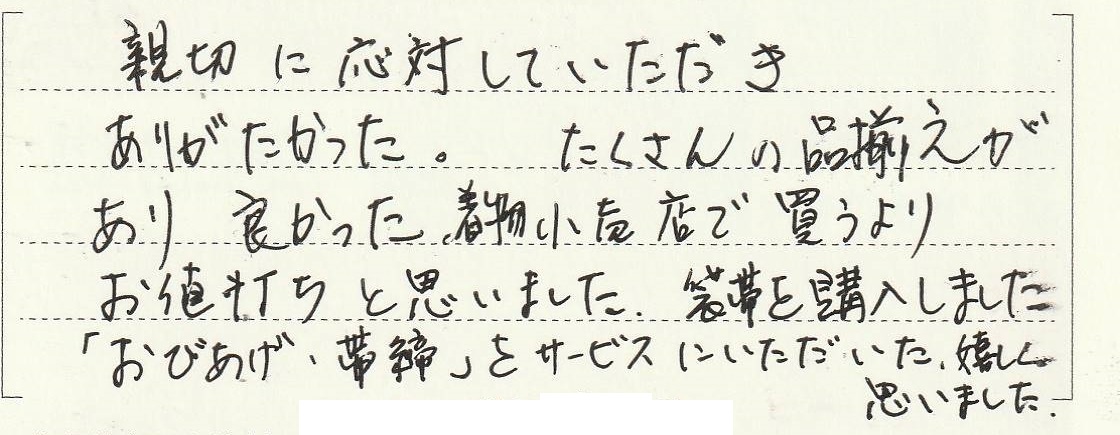 親切に応対していただき
ありがたかった。 たくさんの品揃えが
あり 良かった、着物小売店で買うより
お値打ちと思いました。袋帯を購入しました
「おびあげ・帯締」をサービスにいただいた、嬉しく
思いました。